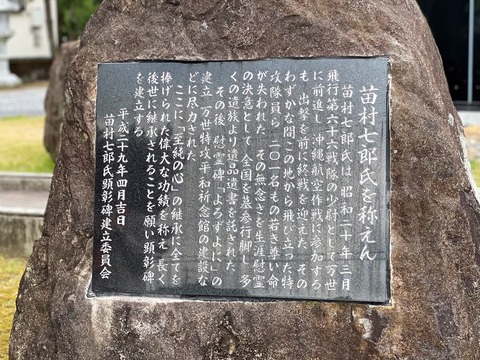 苗村七郎氏を称えん
苗村七郎氏は、昭和二十年三月
飛行第六十六戦隊の少尉として万世
に前進し、沖縄航空作戦に参加する
も、出撃を前に終戦を迎えた。その
わずかな間この地から飛び立った特
攻隊員ら、二〇一名もの若き尊い命
が失われた。その無念さを生涯慰霊
の決意として、全国を墓参行脚し、多
くの遺族より遺品遺書を託された。
その後、慰霊碑「よろずよに」の
建立、万世特攻平和祈念館の建設な
どに尽力された。
ここに、「至純の心」の継承に全てを
捧げられた偉大な功績を称え、長く
後世に継承されることを願い顕彰碑
を建立する。
平成二十九年四月吉日
苗村七郎氏顕彰碑建立委員会